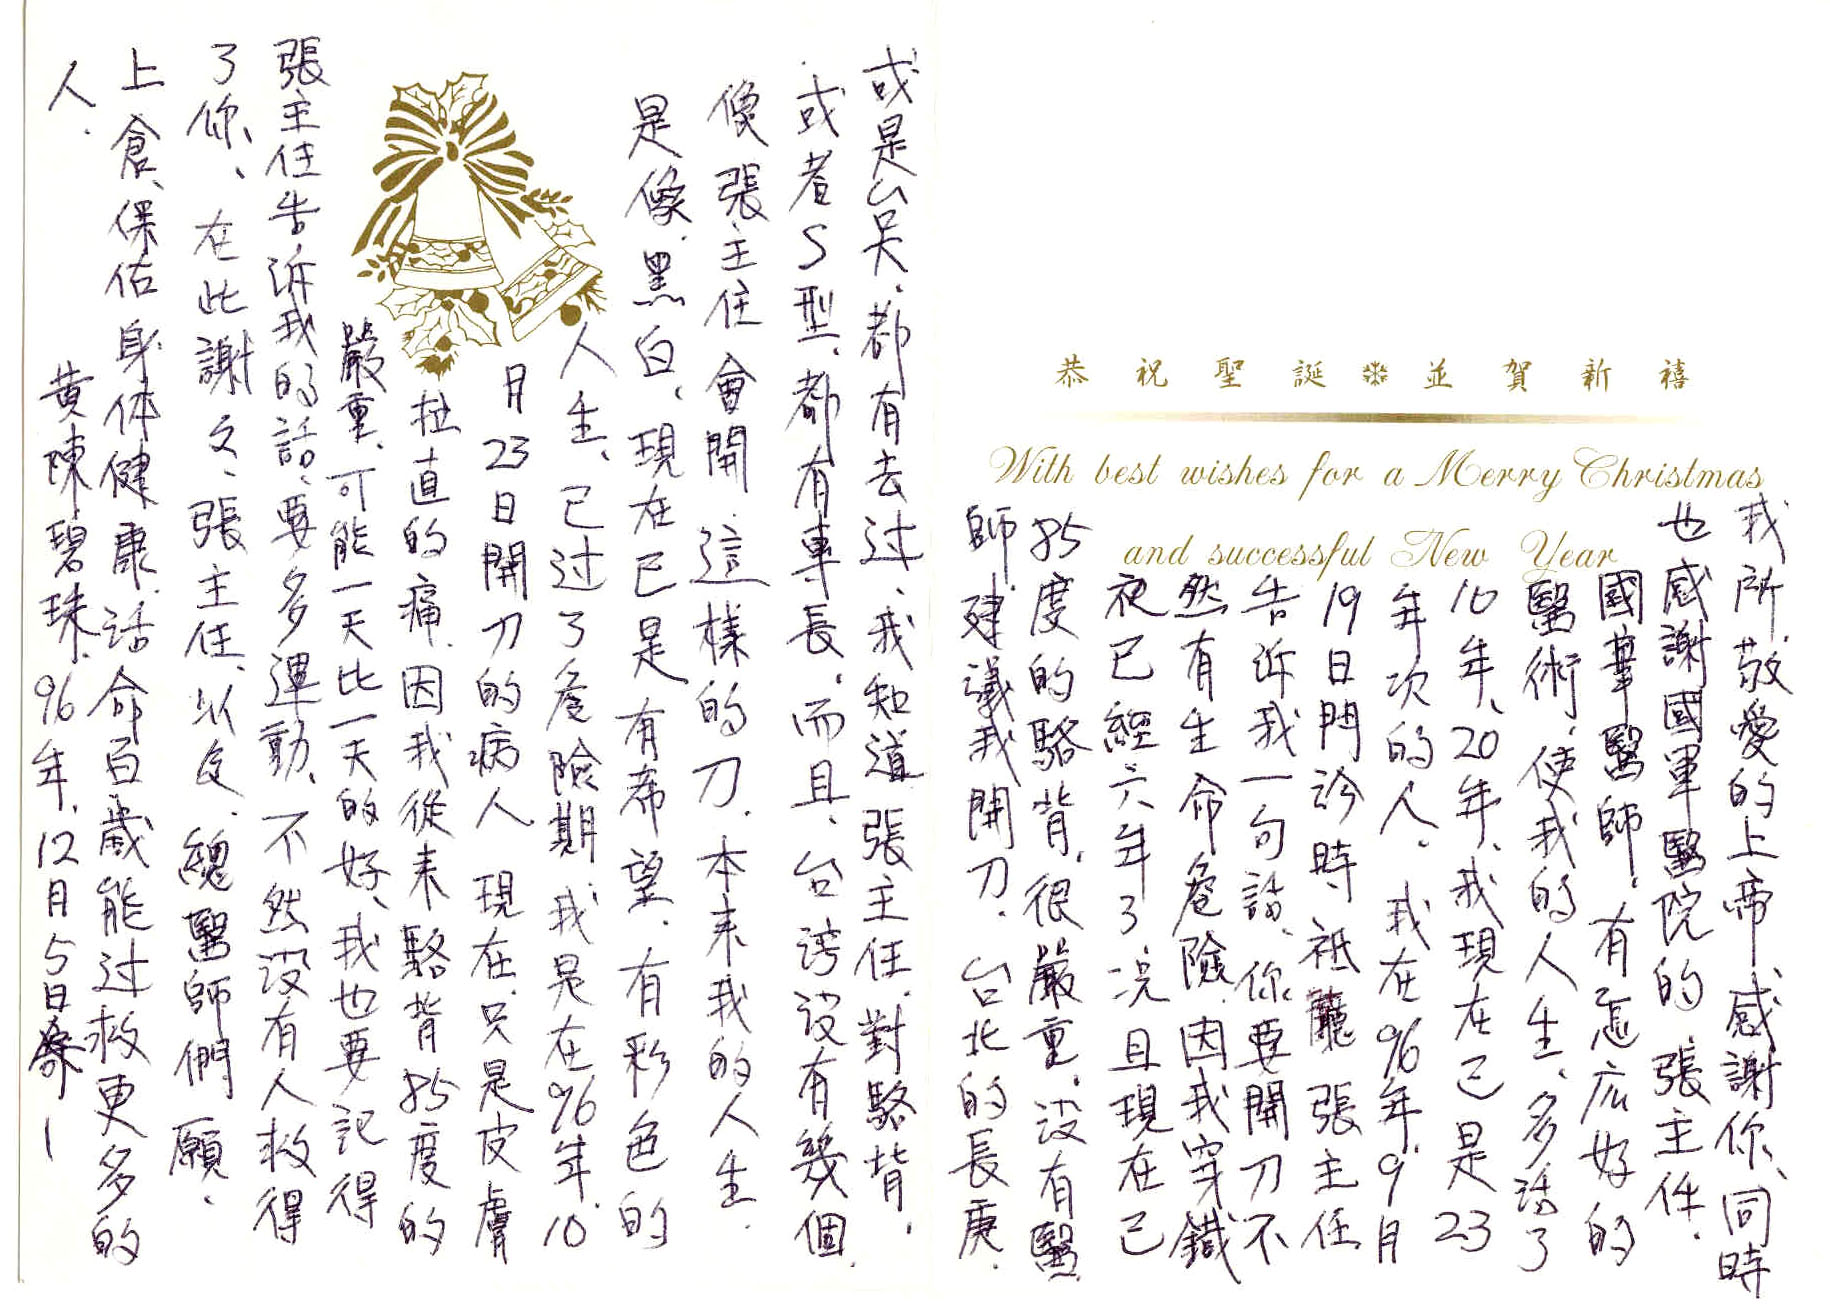 恭祝聖誕❄並賀新禧
With best wishes for a Merry Christmas
and successful New Year
我所敬愛的上帝感謝你、同時
也感謝國軍醫院的張主任.
國華醫師.有怎広好的
醫術.使我的人生.多活了
10年、20年、我現在已是23
年次的人. 我在96年.9月
19日門診時祇聽張主任
告訴我一句話、你要開刀不
然有生命危險.因我穿鐵
衣已經六年了况且現在已
85度的駱背.很嚴重.没有醫
師.建議我開刀.台北的長庚.
或是台大.都有去过、我知道張主任.對駱背.
或者S型.都有專長.而且.台湾没有幾個.
像張主任會開.這樣的刀.本来我的人生.
是像.黑白.現在已是有希望.有彩色的
人生.已过了危險期.我是在96年.10
月23日開刀的病人 現在.只是皮膚
拉直的痛.因我從来駱背85度的
嚴重.可能一天比一天的好、我也要記得
張主任告訴我的話.要多運動.不然没有人救得
了你、在此謝文、張主任、以及.總醫師們願.
上倉.保佑身体健康.活命百歲能过救更多的
人.
黄陳碧珠.96年.12月5日